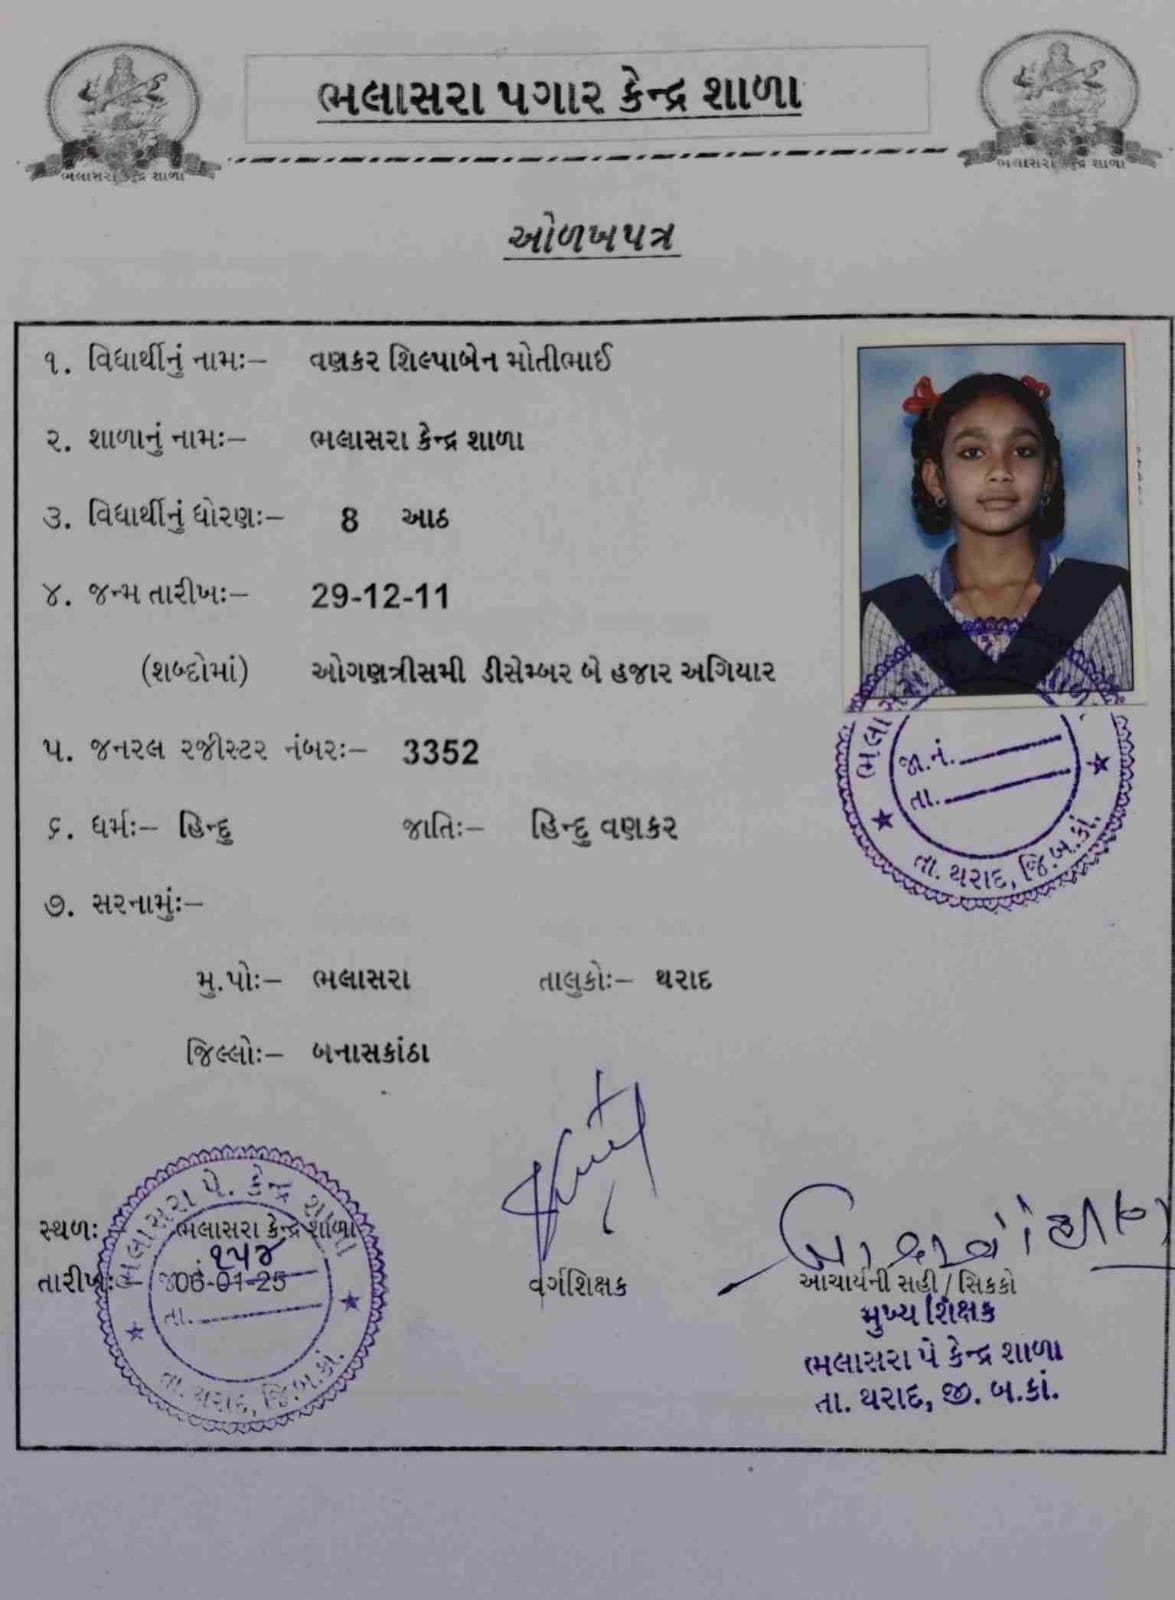 ભલાસરા પગાર કેન્દ્ર શાળા
ભલાસરા કેન્દ્ર શાળા
ભલાસરા કેન્દ્ર શાળા
ઓળખપત્ર
૧. વિદ્યાર્થીનું નામઃ– વણકર શિલ્પાબેન મોતીભાઈ
૨. શાળાનું નામઃ– ભલાસરા કેન્દ્ર શાળા
૩. વિદ્યાર્થીનું ધોરણઃ– 8 આઠ
૪. જન્મ તારીખઃ– 29-12-11
(શબ્દોમાં) ઓગણત્રીસમી ડીસેમ્બર બે હજાર અગિયાર
૫. જનરલ રજીસ્ટર નંબરઃ– 3352
૬. ધર્મઃ– હિન્દુ જાતિઃ– હિન્દુ વણકર
૭. સરનામુંઃ–
મુ.પોઃ– ભલાસરા તાલુકોઃ– થરાદ
જિલ્લોઃ– બનાસકાંઠા
ભલાસરા
જા.નં.
તા.
તા. થરાદ, જિ.બ.કાં.
ભલાસરા પે. કેન્દ્ર શાળા
સ્થળઃ ભલાસરા કેન્દ્ર શાળા
૧૫૪
તારીખઃ 06-01-25
તા.
તા. થરાદ, જિ.બ.કાં.
વર્ગશિક્ષક
આચાર્યની સહી / સિકકો
મુખ્ય શિક્ષક
ભલાસરા પે કેન્દ્ર શાળા
તા. થરાદ, જી. બ.કાં.